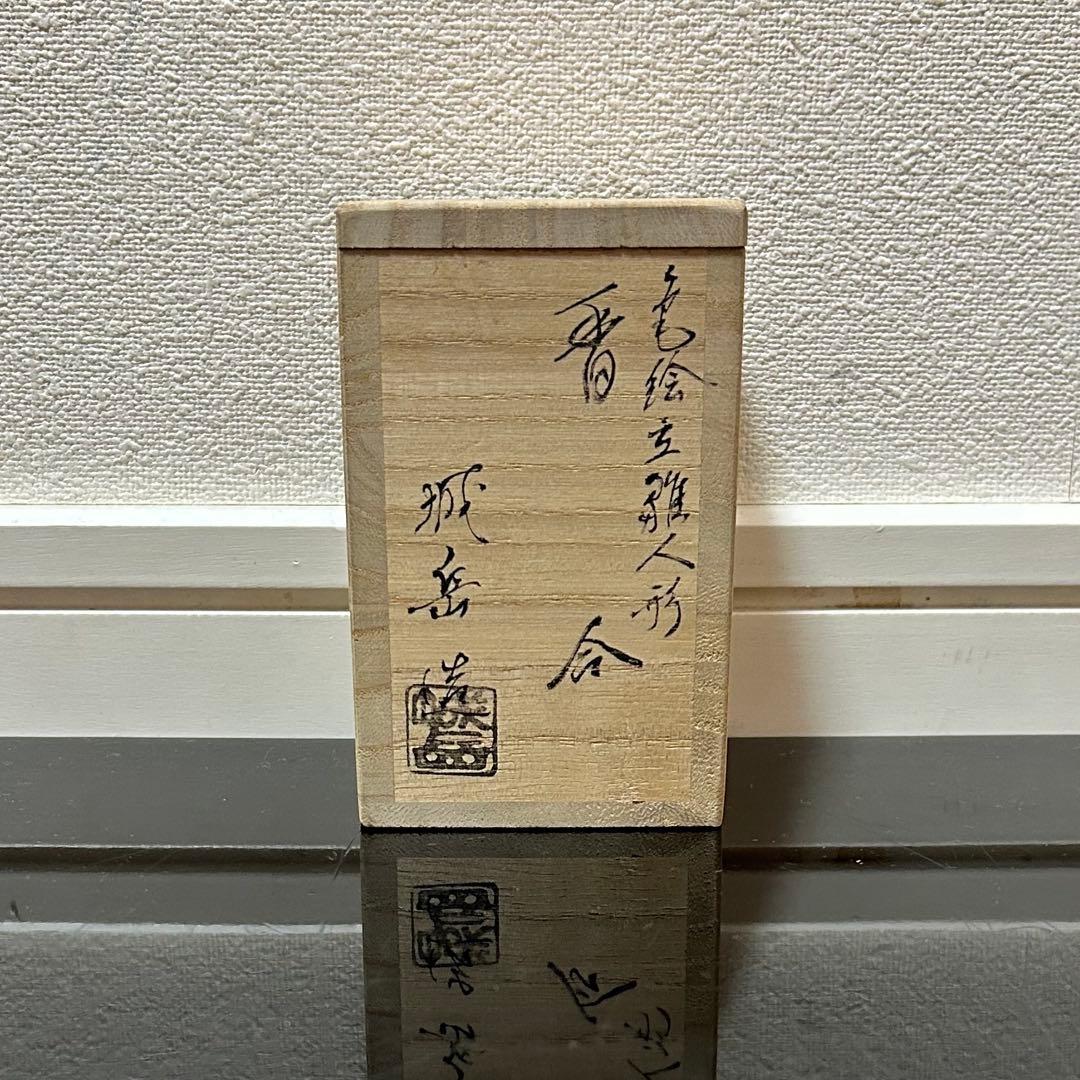 色絵立雛人形
香合
城岳造